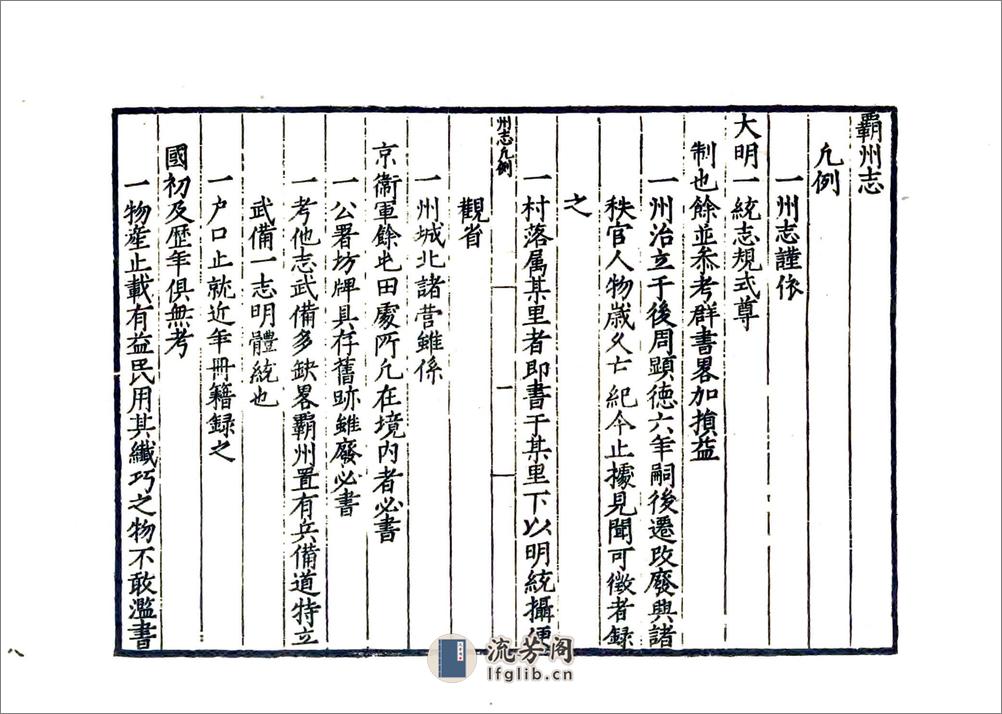 霸州志
凡例
一州志謹依
大明一統志規式尊
制也餘並參考群書畧加損益
一州治立于後周顯德六年嗣後遷改廢興諸
秩官人物歲久亡紀今止據見聞可徵者録
之
一村落属某里者即書于某里下以明統攝便
州志凡例
一
觀省
一州城北諸营雖係
京衞軍餘屯田處所凡在境内者必書
一公署坊牌具存舊跡雖廢必書
一考他志武備多缺畧霸州置有兵備道特立
武備一志明體統也
一户口止就近年冊籍録之
國初及歷年俱無考
一物産止載有益民用其纖巧之物不敢濫書
八
流芳阁
lfglib.cn